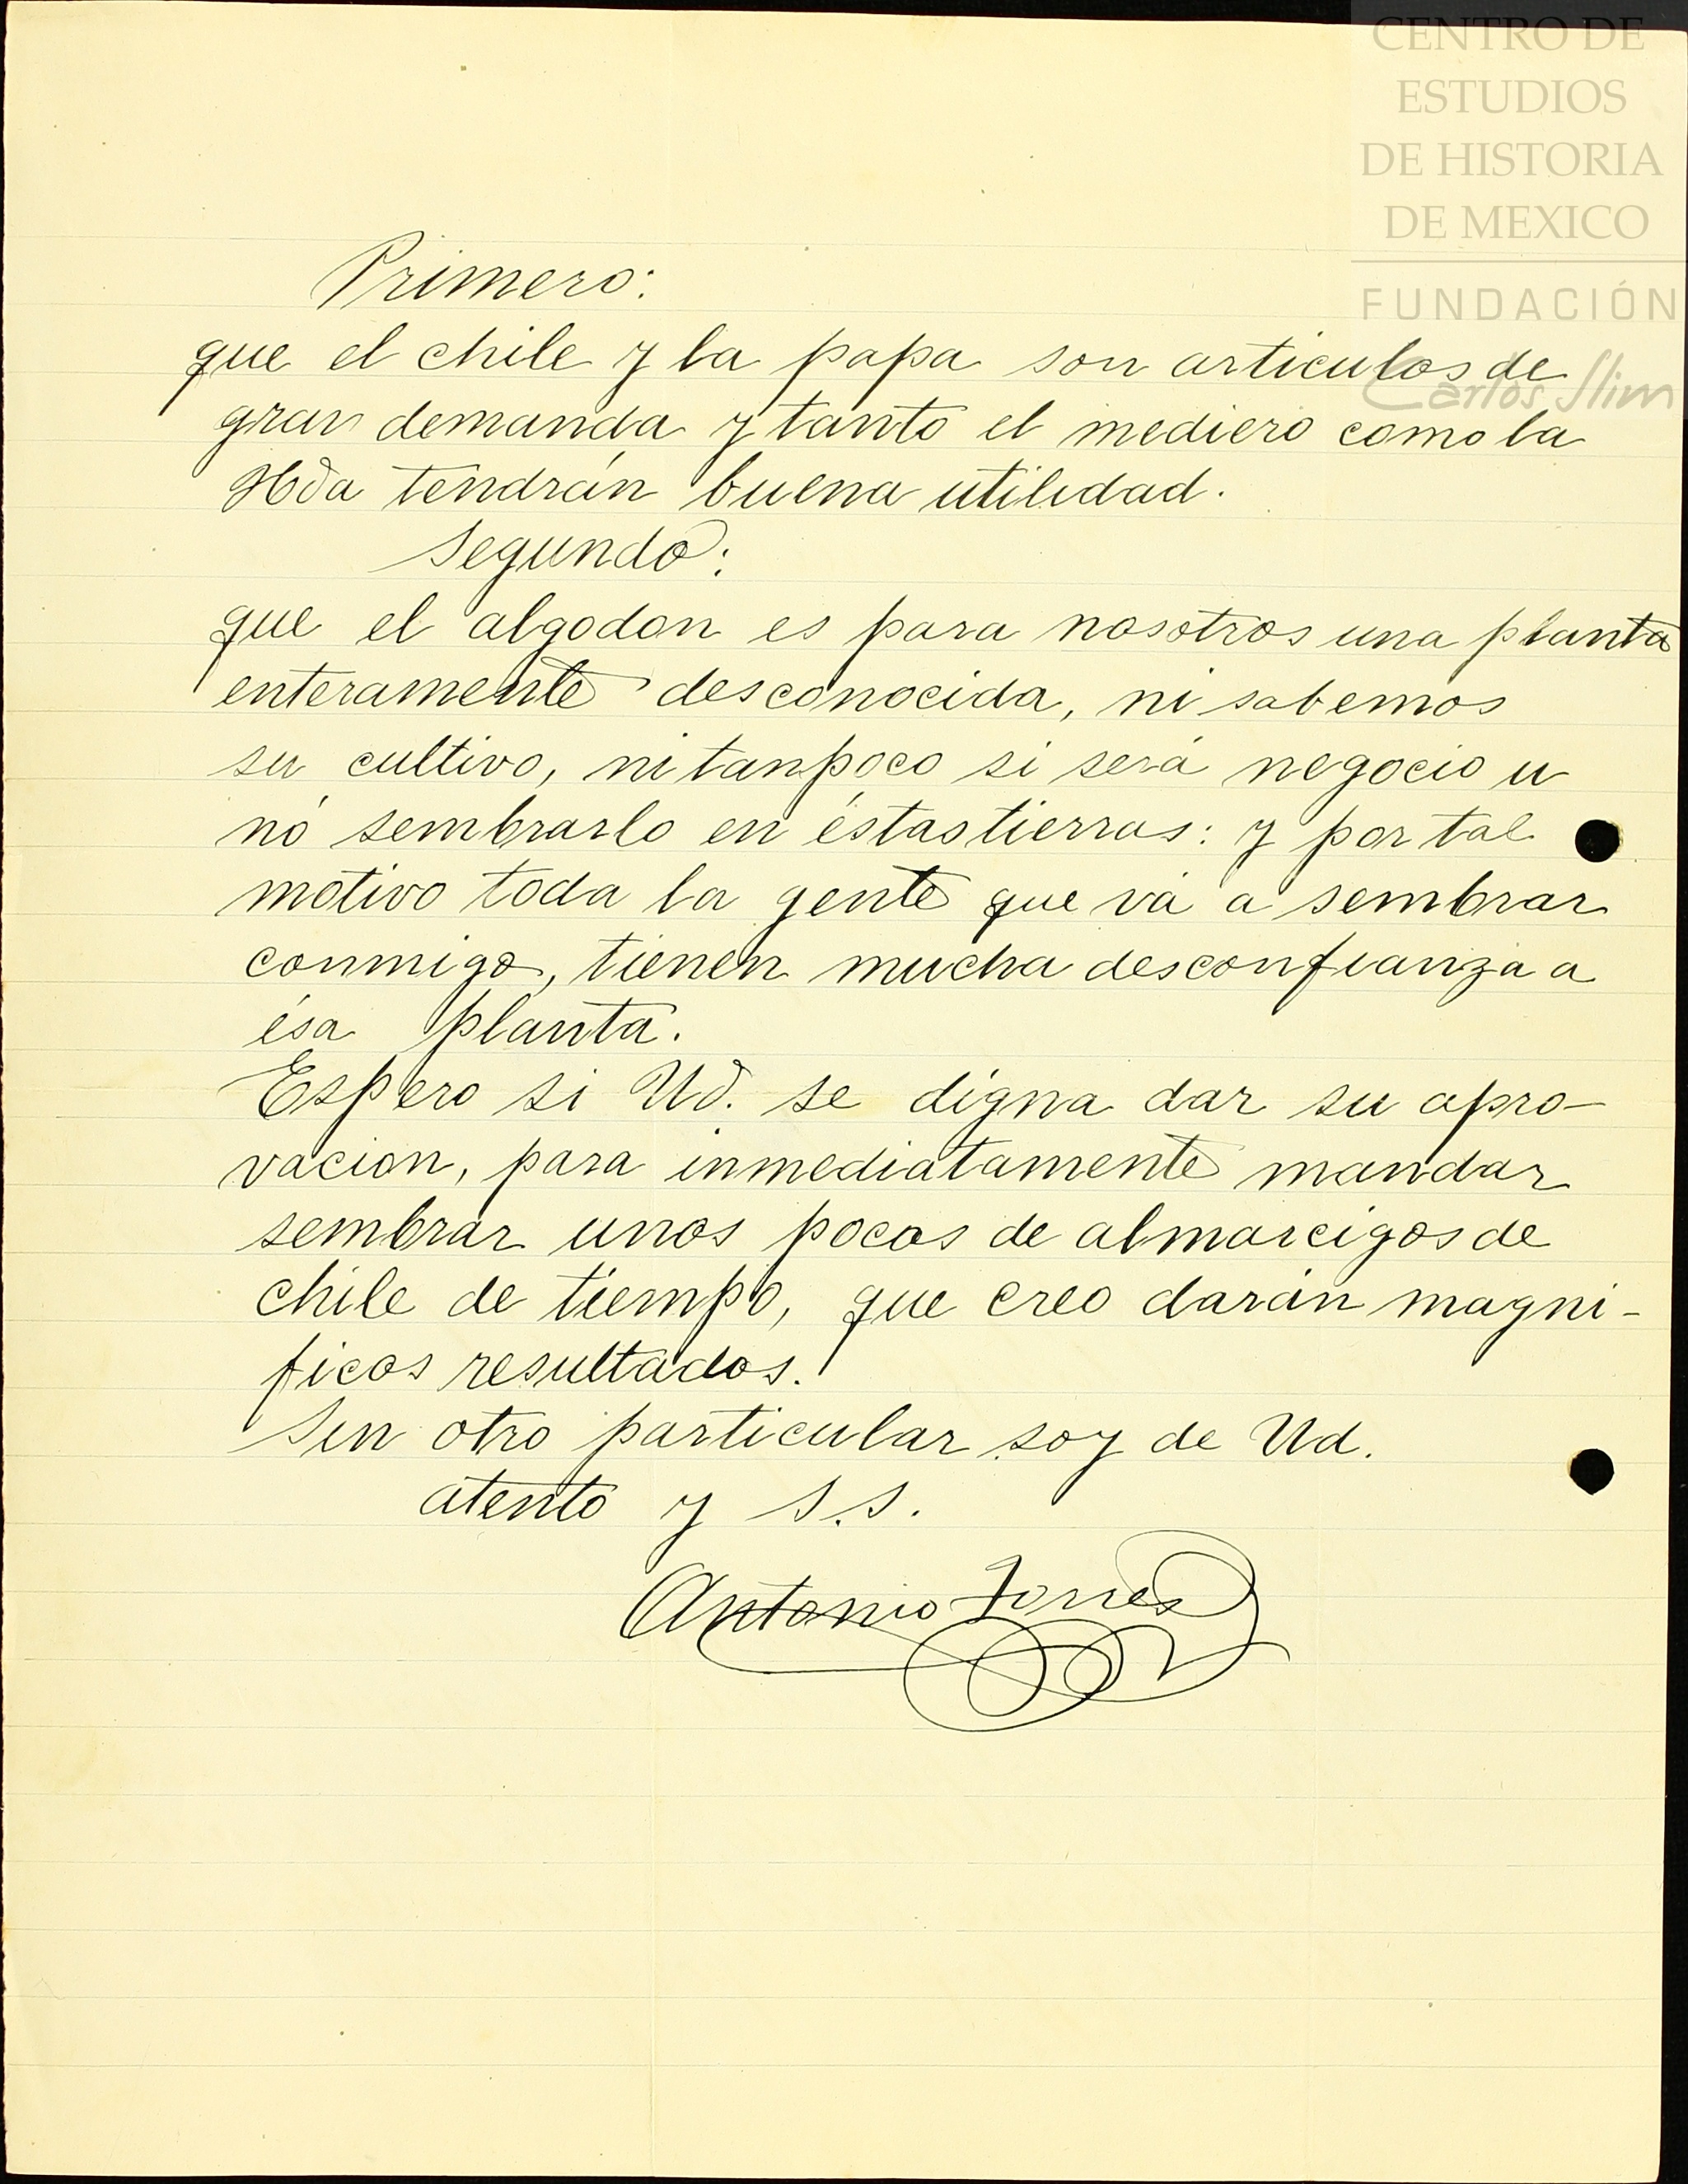 CENTRO DE
ESTUDIOS
DE HISTORIA
DE MEXICO
FUNDACIÓN
Carlos Slim
Primero:
que el chile y la papa son articulos de
gran demanda y tanto el mediero como la
Hda tendrán buena utilidad.
Segundo:
que el algodon es para nosotros una planta
enteramente desconocida, ni sabemos
su cultivo, ni tanpoco si será negocio u
nó sembrarlo en éstas tierras: y por tal
motivo toda la gente que vá a sembrar
conmigo, tienen mucha desconfianza a
ésa planta.
Espero si Ud. se digna dar su apro-
vacion, para inmediatamente mandar
sembrar unos pocos de almarcigos de
chile de tiempo, que creo darán magni-
ficos resultados.
Sin otro particular soy de Ud.
atento y S.S.
Antonio Torres